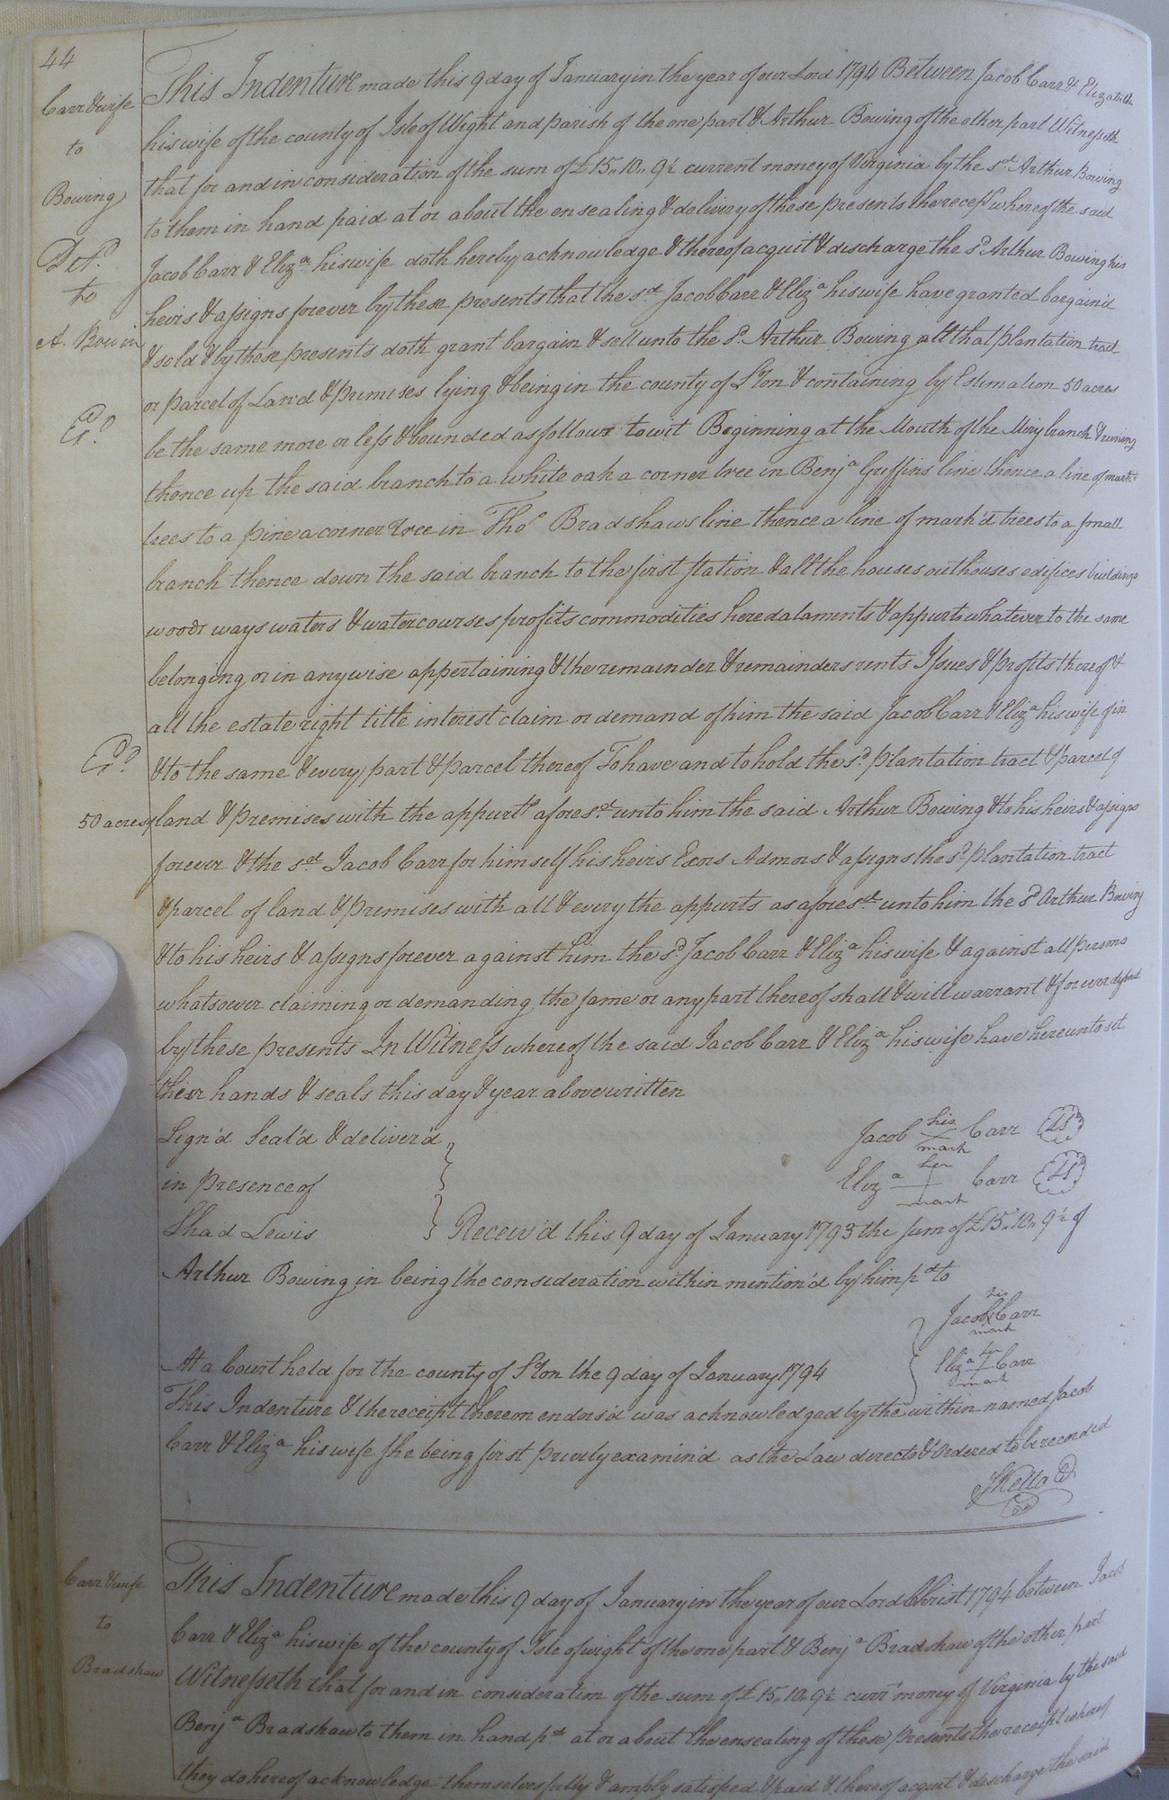 44
Carr & wife
to
Bowing
Del.d
to
A. Bowin
Ex.d
Ex.d
50 acres
This Indenture made this 9 day of January in the year of our Lord 1794 Between Jacob Carr & Elizabeth
his wife of the county of Isle of Wight and parish of the one part & Arthur Bowing of the other part Witnesseth
that for and in consideration of the sum of £15.. 10.. 9½ current money of Virginia by the sd. Arthur Bowing
to them in hand paid at or about the ensealing & delivery of these presents the recept whereof the said
Jacob Carr & Eliza. his wife doth hereby acknowledge & thereof acquit & discharge the sd. Arthur Bowing his
heirs & assigns forever by these presents that the sd. Jacob Carr & Eliza his wife have granted bargain'd
& sold & by these presents doth grant bargain & sell unto the sd. Arthur Bowing all that plantation tract
or parcel of Land & premises lying & being in the county of S'ton & containing by Estimation 50 acres
be the same more or less & bounded as follows to wit Beginning at the Mouth of the Miry branch & runing
thence up the said branch to a white oak a corner tree in Benja. Griffins line thence a line of mark'd
trees to a pine a corner tree in Thos. Bradshaws line thence a line of mark'd trees to a small
branch thence down the said branch to the first station & all the houses outhouses edifices buildings
woods ways waters & watercourses profits commodities heredalaments & appurts whatever to the same
belonging or in any wise appertaining & the remainder & remainders rents Issues & profits thereof &
all the estate right title interest claim or demand of him the said Jacob Carr & Eliza his wife of in
& to the same & every part & parcel thereof To have and to hold the sd. plantation tract & parcel of
land & premises with the appurts. aforesd. unto him the said Arthur Bowing & to his heirs & assigns
forever & the sd. Jacob Carr for himself his heirs Exors Admors & assigns the sd. plantation tract
& parcel of land & premises with all & every the appurts as aforesd. unto him the sd. Arthur Bowing
& to his heirs & assigns forever against him the sd. Jacob Carr & Eliza his wife & against all persons
whatsower claiming or demanding the same or any part thereof shall & will warrant & forever defend
by these presents In Witness whereof the said Jacob Carr & Eliza. his wife have hereunto set
their hands & seals this day & year above written
Sign'd Seal'd & deliver'd
in presence of
Shad Lewis
Jacob his X mark Carr LS
Eliza her + mark Carr LS
Receiv'd this 9 day of January 1793 the sum of £15.. 10.. 9½ of
Arthur Bowing in being the consideration within mention'd by him pd. to
Jacob his X mark Carr
Eliza her + mark Carr
At a Court held for the county of S'ton the 9 day of January 1794
This Indenture & the receipt thereon endors'd was acknowledged by the within named Jacob
Carr & Eliza his wife she being first privily examin'd as the Law directs & Ordered to be recorded
SKello
Carr & wife
to
Bradshaw
This Indenture made this 9 day of January in the year of our Lord Christ 1794 between Jacob
Carr & Eliza his wife of the county of Isle of wight of the one part & Benja. Bradshaw of the other part
Witnesseth that for and in consideration of the sum of £15.. 10.. 9½ curr't money of Virginia by the said
Benja. Bradshaw to them in hand pd. at or about the ensealing of these presents the receipt whereof
they do hereof acknowledge themselves fully & amply satisfied & paid & thereof acquit & discharge the said